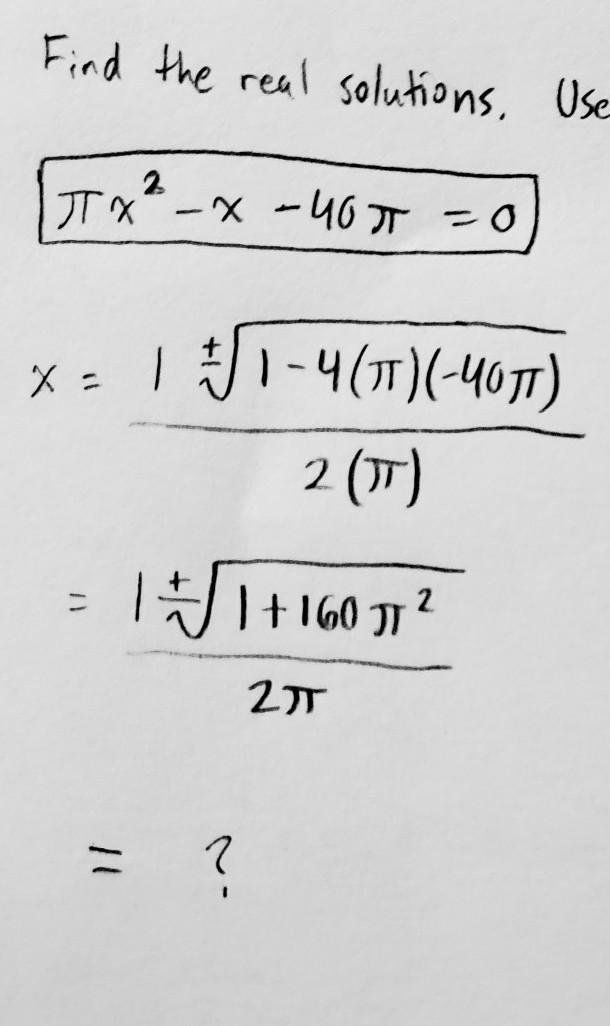 Find the real solutions. Use
πx² - x - 40π = 0
x = 1 ± √1-4(π)(-40π)
2(π)
= 1 ± √1+160π²
2π
= ?